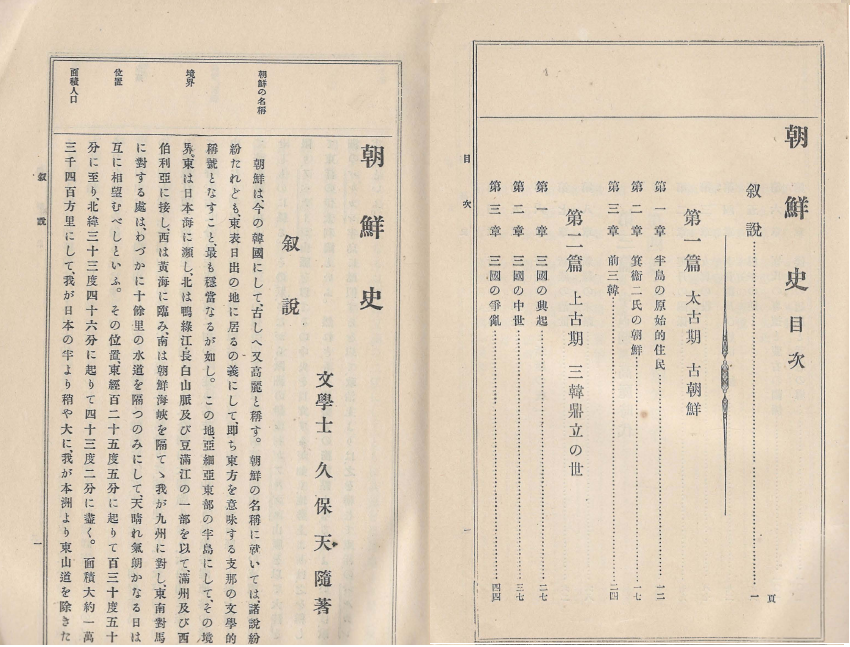 朝鮮史目次
頁
叙說……一
第一篇 太古期 古朝鮮
第一章 半島の原始的住民……一二
第二章 箕衞二氏の朝鮮……一七
第三章 前三韓……二四
第二篇 上古期 三韓鼎立の世
第一章 三國の興起……二七
第二章 三國の中世……三七
第三章 三國の爭亂……四四
目次
一
朝鮮史
文學士 久保天隨著
叙說
朝鮮の名稱
朝鮮は、今の韓國にして、古しへ又高麗と稱す。朝鮮の名稱に就いては、諸說紛
紛たれども、東表日出の地に居るの義にして、即ち東方を意味する支那の文學的
稱號となすこと、最も穩當なるが如し。この地、亞細亞東部の半島にして、その境
境界
界、東は日本海に瀕し、北は鴨綠江、長白山脈及び豆滿江の一部を以て、滿州及び西
伯利亞に接し、西は黃海に臨み、南は朝鮮海峽を隔てゝ我が九州に對し、東南對馬
に對する處は、わづかに十餘里の水道を隔つのみにして、天晴れ氣朗かなる日は
位置
互に相望むべしといふ。その位置、東經百二十五度五分に起りて百三十度五十
分に至り、北緯三十三度四十六分に起りて四十三度二分に盡く。面積大約一萬
面積人口
三千四百方里にして、我が日本の半より稍や大に、我が本洲より東山道を除きた
叙說
一